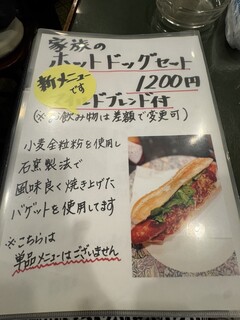 家族の
ホットドッグセット
新メニューです
1200円
ブレンド付
(※お飲み物は差額で変更可)
小麦全粒粉を使用し
石窯製法で
風味良く焼き上げた
バゲットを使用してます
※こちらは
単品メニューはございません